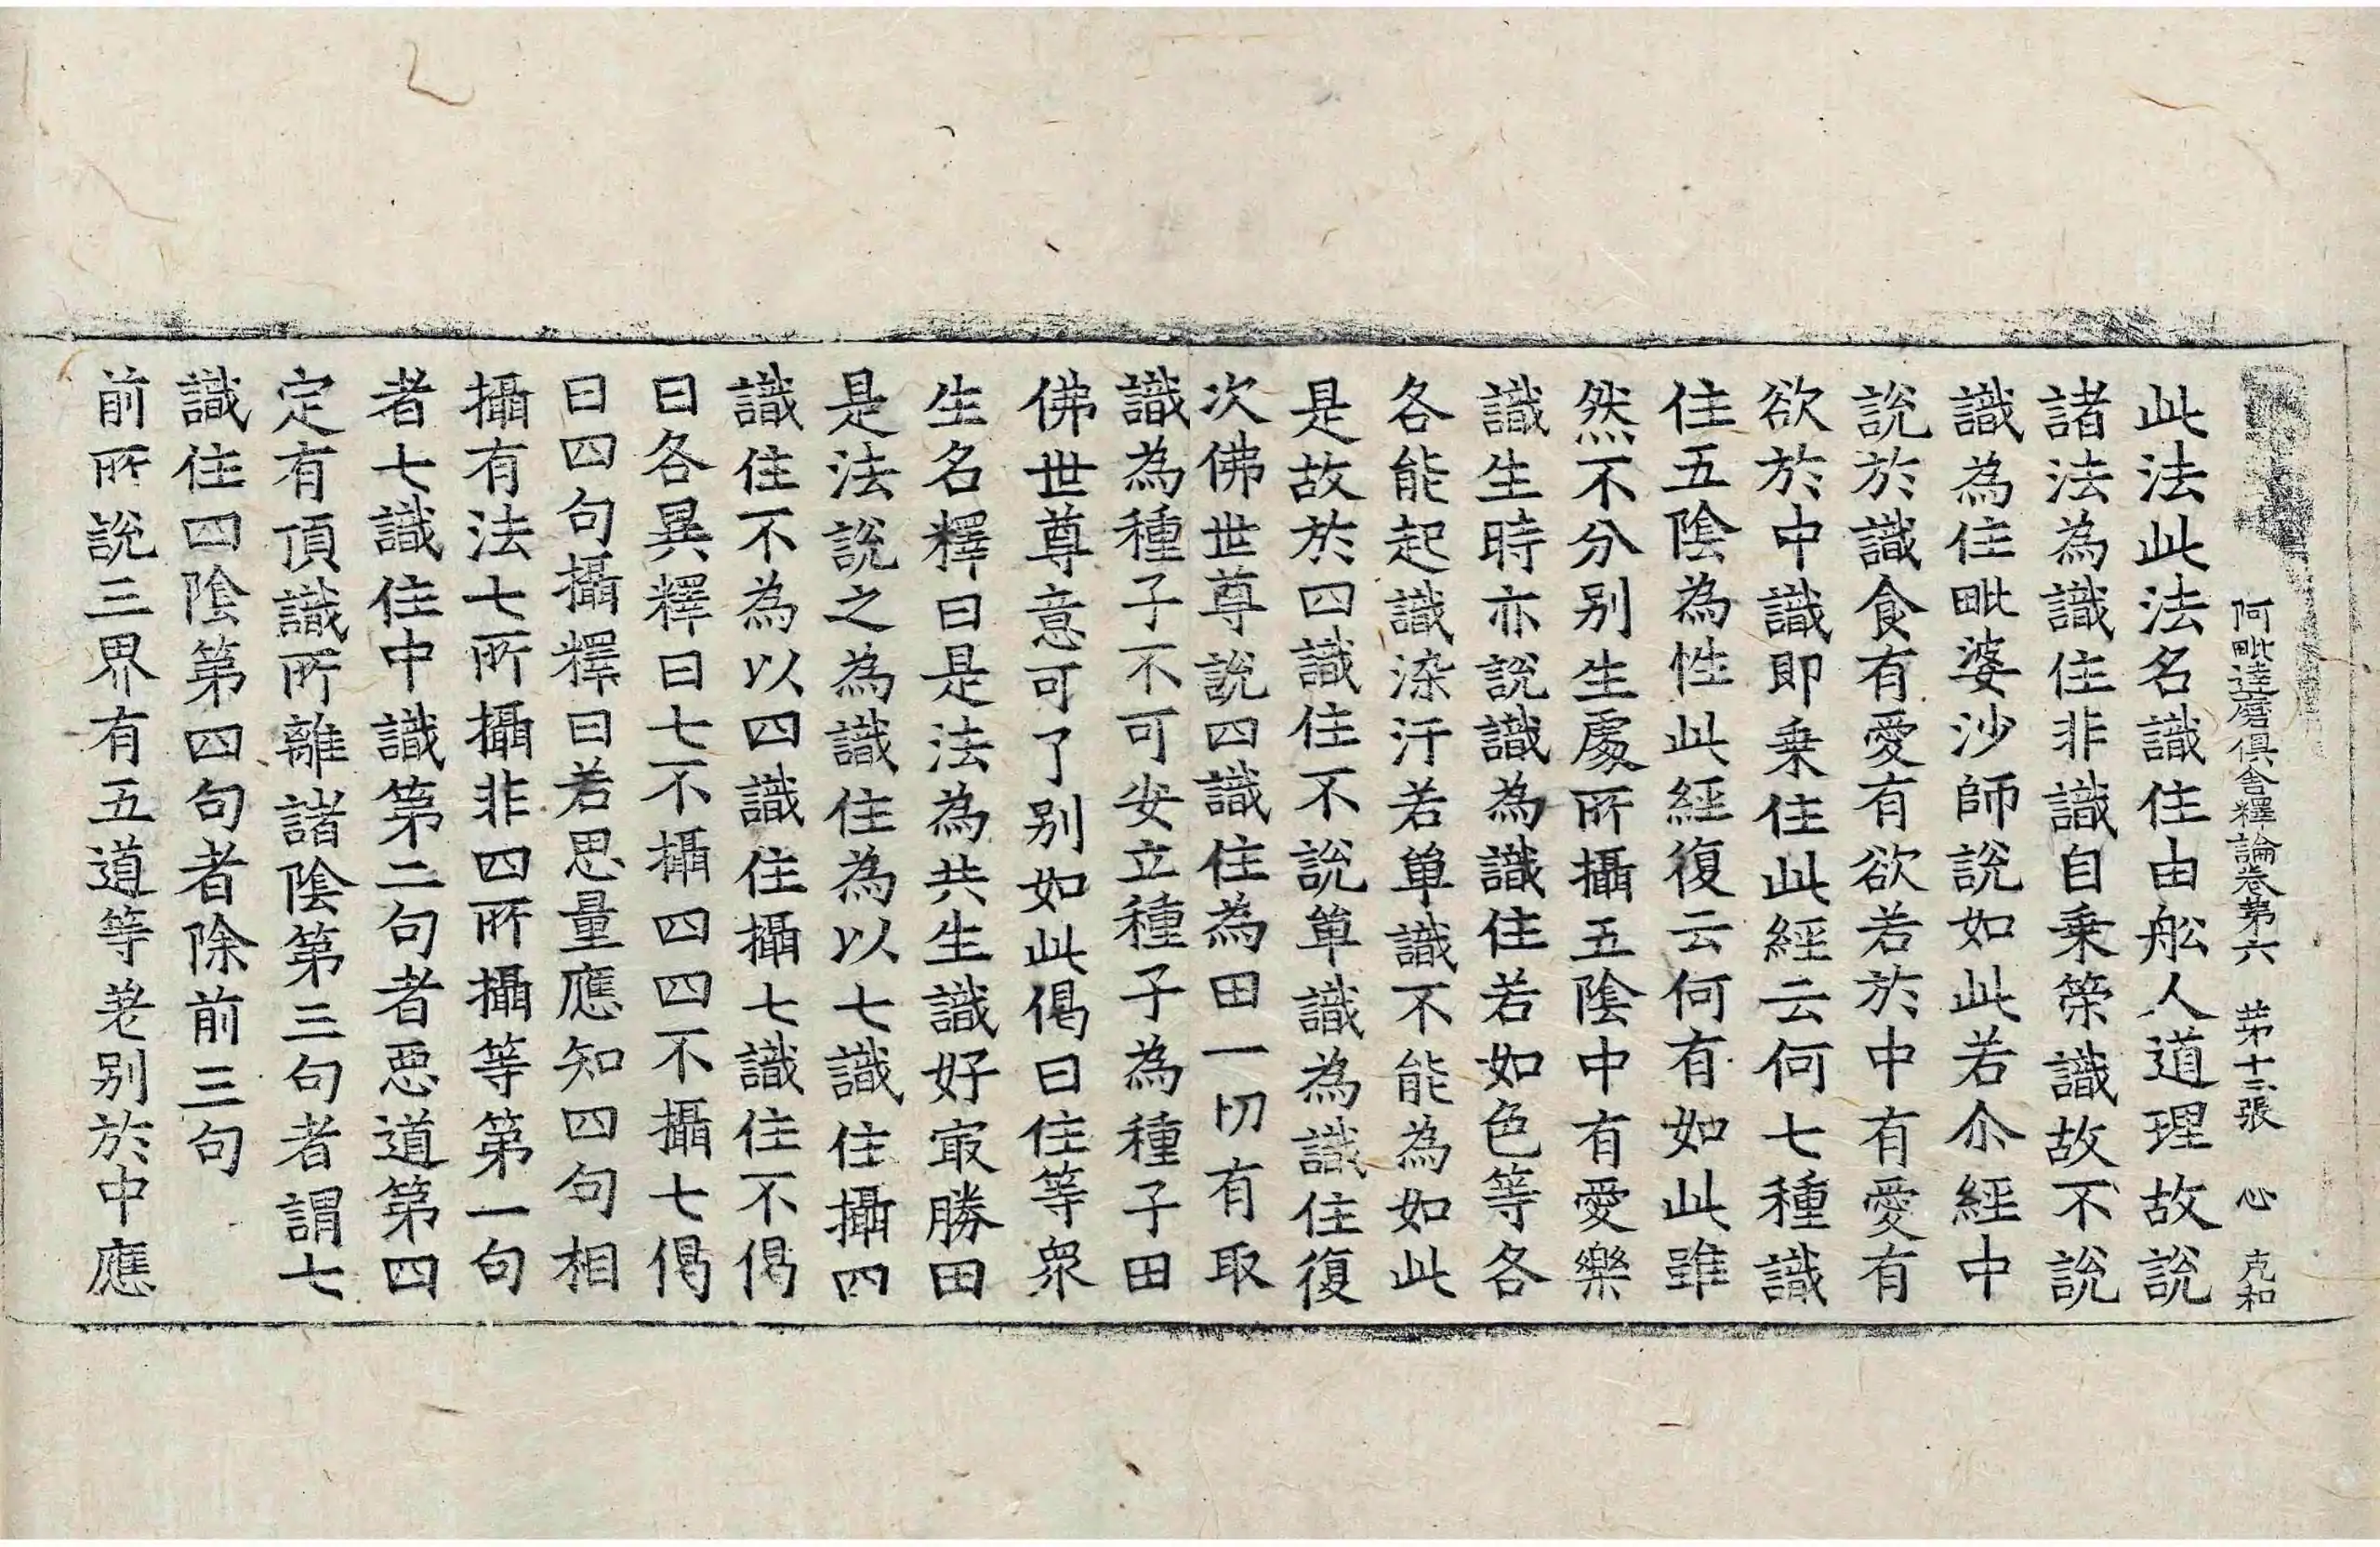 阿毗達磨俱舍釋論卷第六 苐十三張 心 克和
此法此法名識住由舩人道理故說
諸法為識住非識自乗策識故不說
識為住毗婆沙師說如此若尒經中
說於識食有愛有欲若於中有愛有
欲於中識即乗住此經云何七種識
住五陰為性此經復云何有如此雖
然不分别生處所攝五陰中有愛樂
識生時亦說識為識住若如色等各
各能起識染汙若單識不能為如此
是故於四識住不說單識為識住復
次佛世尊說四識住為田一切有取
識為種子不可安立種子為種子田
佛世尊意可了别如此偈曰住等衆
生名釋曰是法為共生識好㝡勝田
是法說之為識住為以七識住攝四
識住不為以四識住攝七識住不偈
曰各異釋曰七不攝四四不攝七偈
曰四句攝釋曰若思量應知四句相
攝有法七所攝非四所攝等第一句
者七識住中識第二句者惡道第四
定有頂識所離諸陰第三句者謂七
識住四陰第四句者除前三句
前所說三界有五道等差别於中應